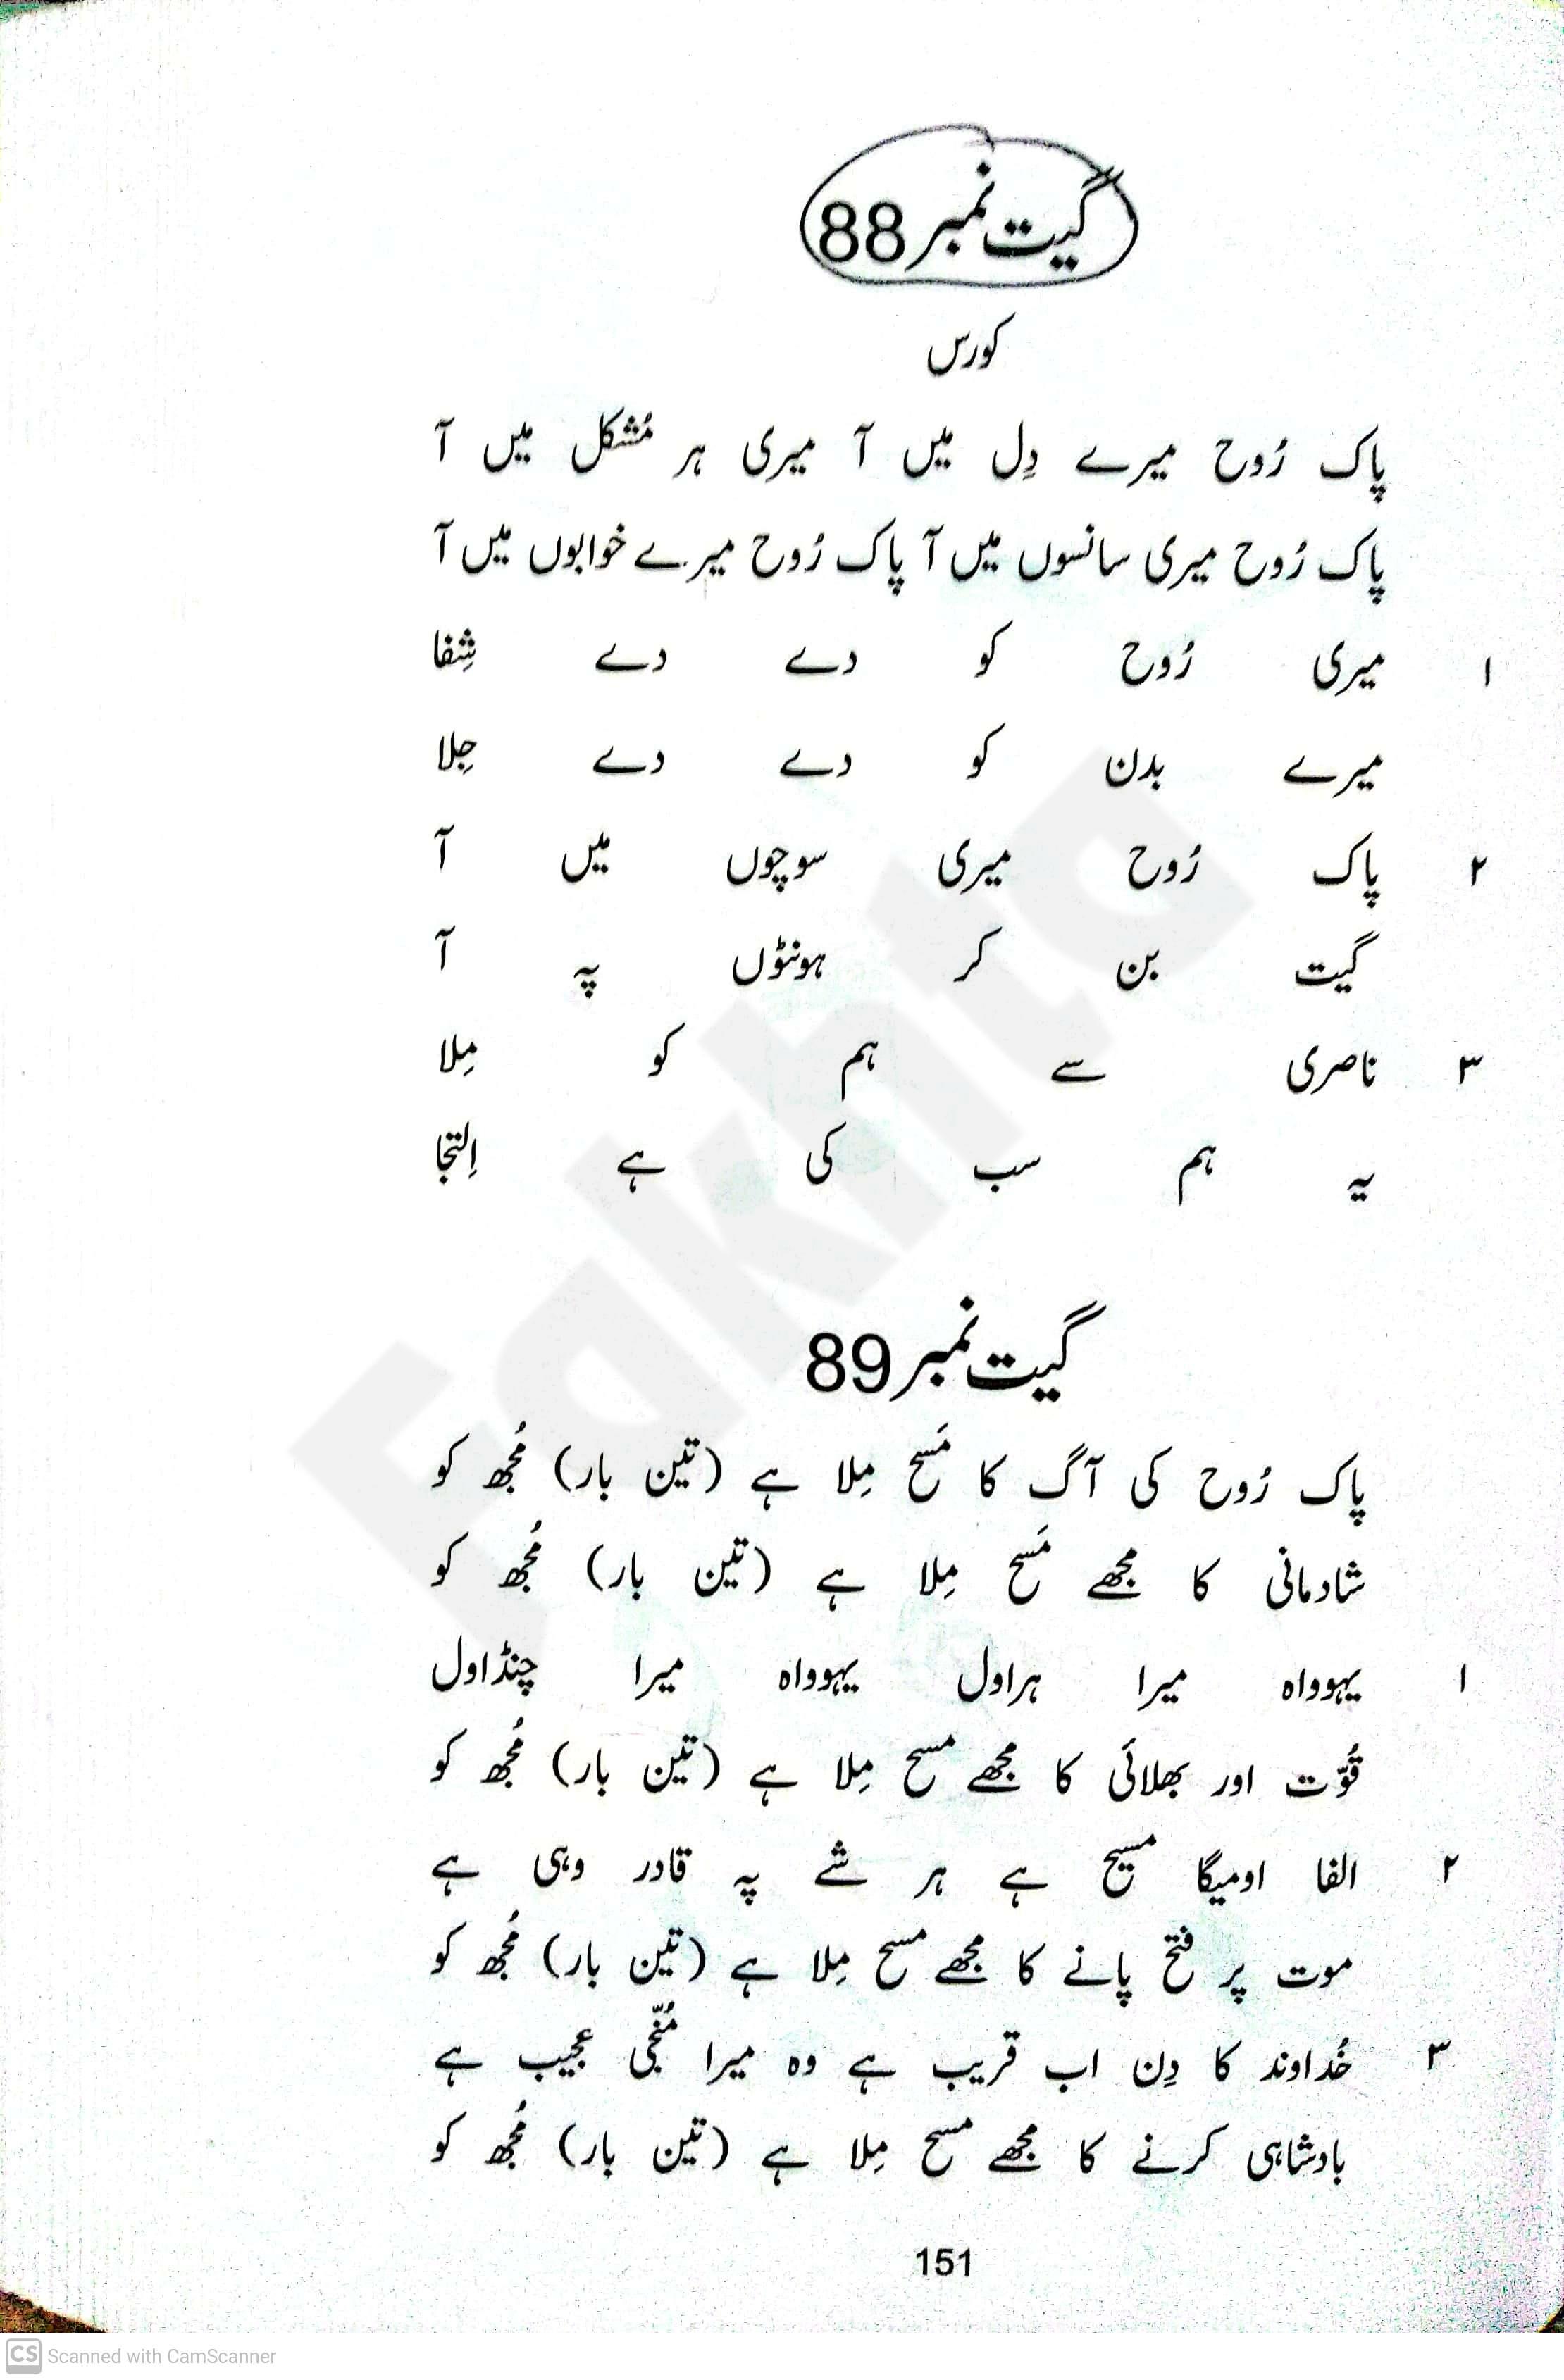 گیت نمبر 88
کورس
پاک رُوح میرے دِل میں آ میری ہر مُشکل میں آ
پاک رُوح میری سانسوں میں آ پاک رُوح میرے خوابوں میں آ
۱ میری رُوح کو دے دے شِفا
میرے بدن کو دے دے جِلا
۲ پاک رُوح میری سوچوں میں آ
گیت بن کر ہونٹوں پہ آ
۳ ناصری سے ہم کو مِلا
یہ ہم سب کی ہے اِلتجا
گیت نمبر 89
پاک رُوح کی آگ کا مَسح مِلا ہے (تین بار) مُجھ کو
شادمانی کا مجھے مَسح مِلا ہے (تین بار) مُجھ کو
۱ یہوواہ میرا ہراول یہوواہ میرا چنڈاول
قُوّت اور بھلائی کا مجھے مسح مِلا ہے (تین بار) مُجھ کو
۲ الفا اومیگا مسیح ہے ہر شے پہ قادر وہی ہے
موت پر فتح پانے کا مجھے مسح مِلا ہے (تین بار) مُجھ کو
۳ خُداوند کا دِن اب قریب ہے وہ میرا مُنّجی عجیب ہے
بادشاہی کرنے کا مجھے مسح مِلا ہے (تین بار) مُجھ کو
151
Fakhta
CS Scanned with CamScanner